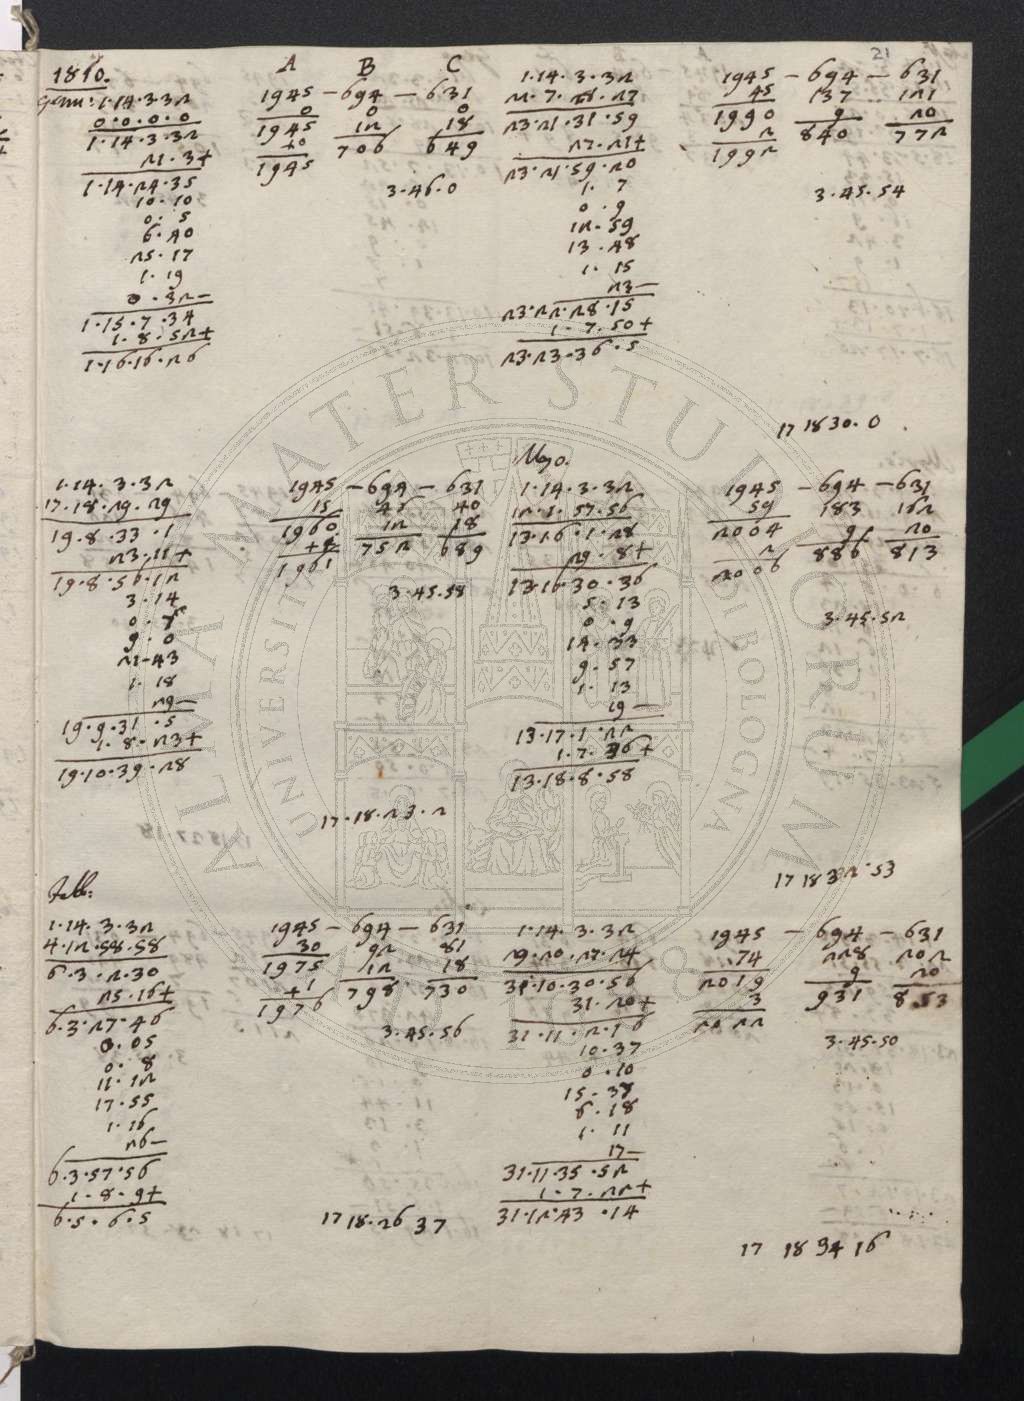 21
1810.
A B C
Genn: 1.14.3.32
0.0.0.0
1.14.3.32
21.3+
1.14.24.35
10.10
0.5
6.40
25.17
1.19
0.32-
1.15.7.34
1.8.52+
1.16.16.26
1945 - 694 - 631
0 0 0
1945 12 18
+0 706 649
1945
3.46.0
1.14.3.32
22.7.28.27
23.21.31.59
27.21+
23.21.59.20
1.7
0.9
12.59
13.48
1.15
23-
23.22.28.15
1.7.50+
23.23.36.5
1945 - 694 - 631
45 137 121
1990 9 20
2 840 772
1992
3.45.54
17 18 30.0
1.14.3.32
17.18.29.29
19.8.33.1
23.11+
19.8.56.12
3.14
9.0
21.43
1.18
29-
19.9.31.5
1.8.23+
19.10.39.28
1945 - 694 - 631
15 46 40
1960 12 18
+1 752 689
1961
3.45.58
17.18.23.2
1.14.3.32
12.1.57.56
13.16.1.28
29.8+
13.16.30.36
5.13
0.9
14.33
9.57
1.13
19-
13.17.1.22
1.7.36+
13.18.8.58
1945 - 694 - 631
59 183 162
2004 9 20
2 886 813
2006
3.45.52
17 18 32.53
Febb:
1.14.3.32
4.12.58.58
6.3.2.30
25.16+
6.3.27.46
0.05
0.8
11.12
17.55
1.16
26-
6.3.57.56
1.8.9+
6.5.6.5
1945 - 694 - 631
30 92 81
1975 12 18
+1 798 730
1976
3.45.56
17 18.26 37
1.14.3.32
29.20.27.24
31.10.30.56
31.20+
31.11.2.16
10.37
0.10
15.38
6.18
1.11
17-
31.11.35.52
1.7.22+
31.12.43.14
1945 - 694 - 631
74 228 202
2019 9 20
3 931 853
2022
3.45.50
17 18 34 16
ALMA MATER STUDIORUM
UNIVERSITÀ DI BOLOGNA